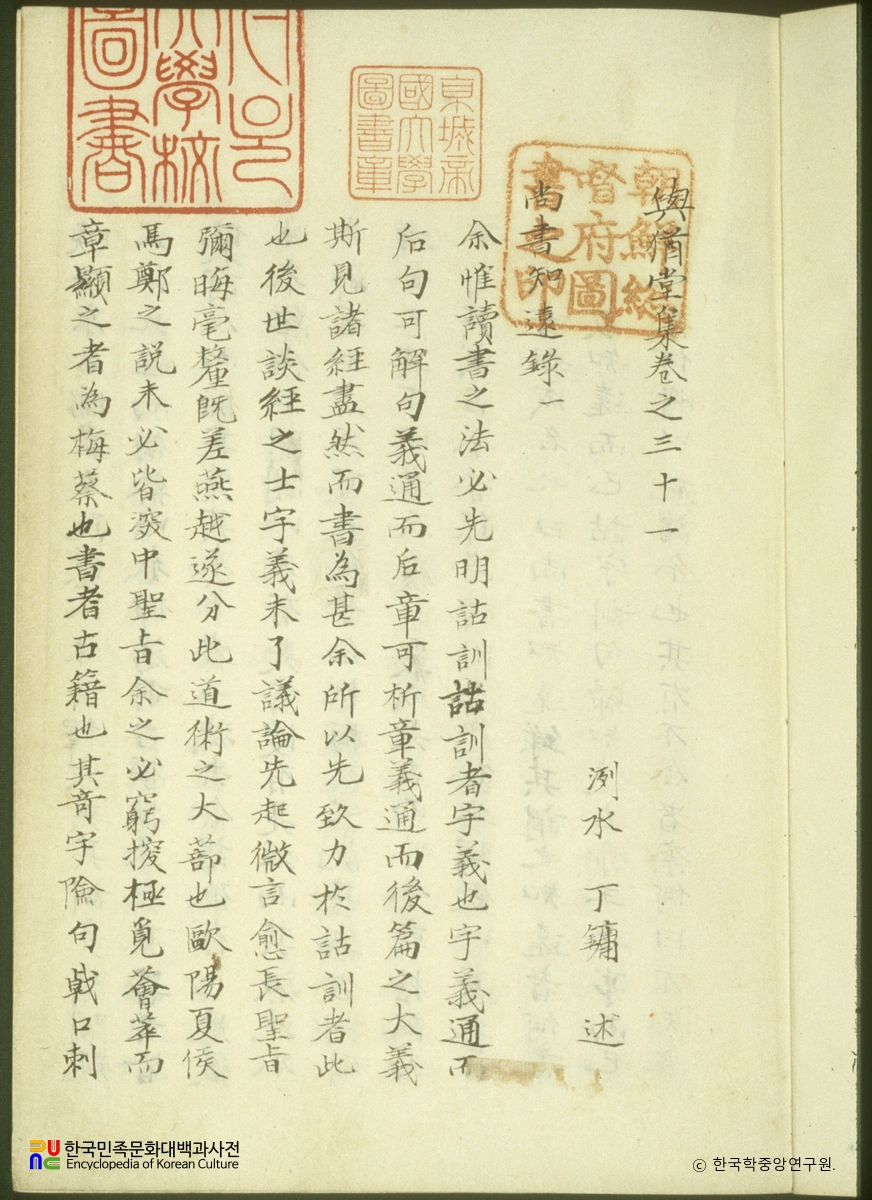 與猶堂集卷之三十一
洌水 丁鏞 述
尚書知遠錄一
余惟讀書之法必先明詁訓詁訓者字義也字義通而
后句可解句義通而后章可析章義通而後篇之大義
斯見諸經盡然而書為甚余所以先致力於詁訓者此
也後世談經之士字義未了議論先起微言愈長聖旨
彌晦毫釐既差燕越遂分此道術之大蔀也歐陽夏侯
馬鄭之說未必皆深中聖旨余之必窮搜極覓薈萃而
章顯之者為梅蔡也書者古籍也其奇字險句戟口刺
朝鮮總
督府圖
書之印
京城帝
國大學
圖書章
大學校
圖書
한국민족문화대백과사전
Encyclopedia of Korean Culture
ⓒ 한국학중앙연구원.